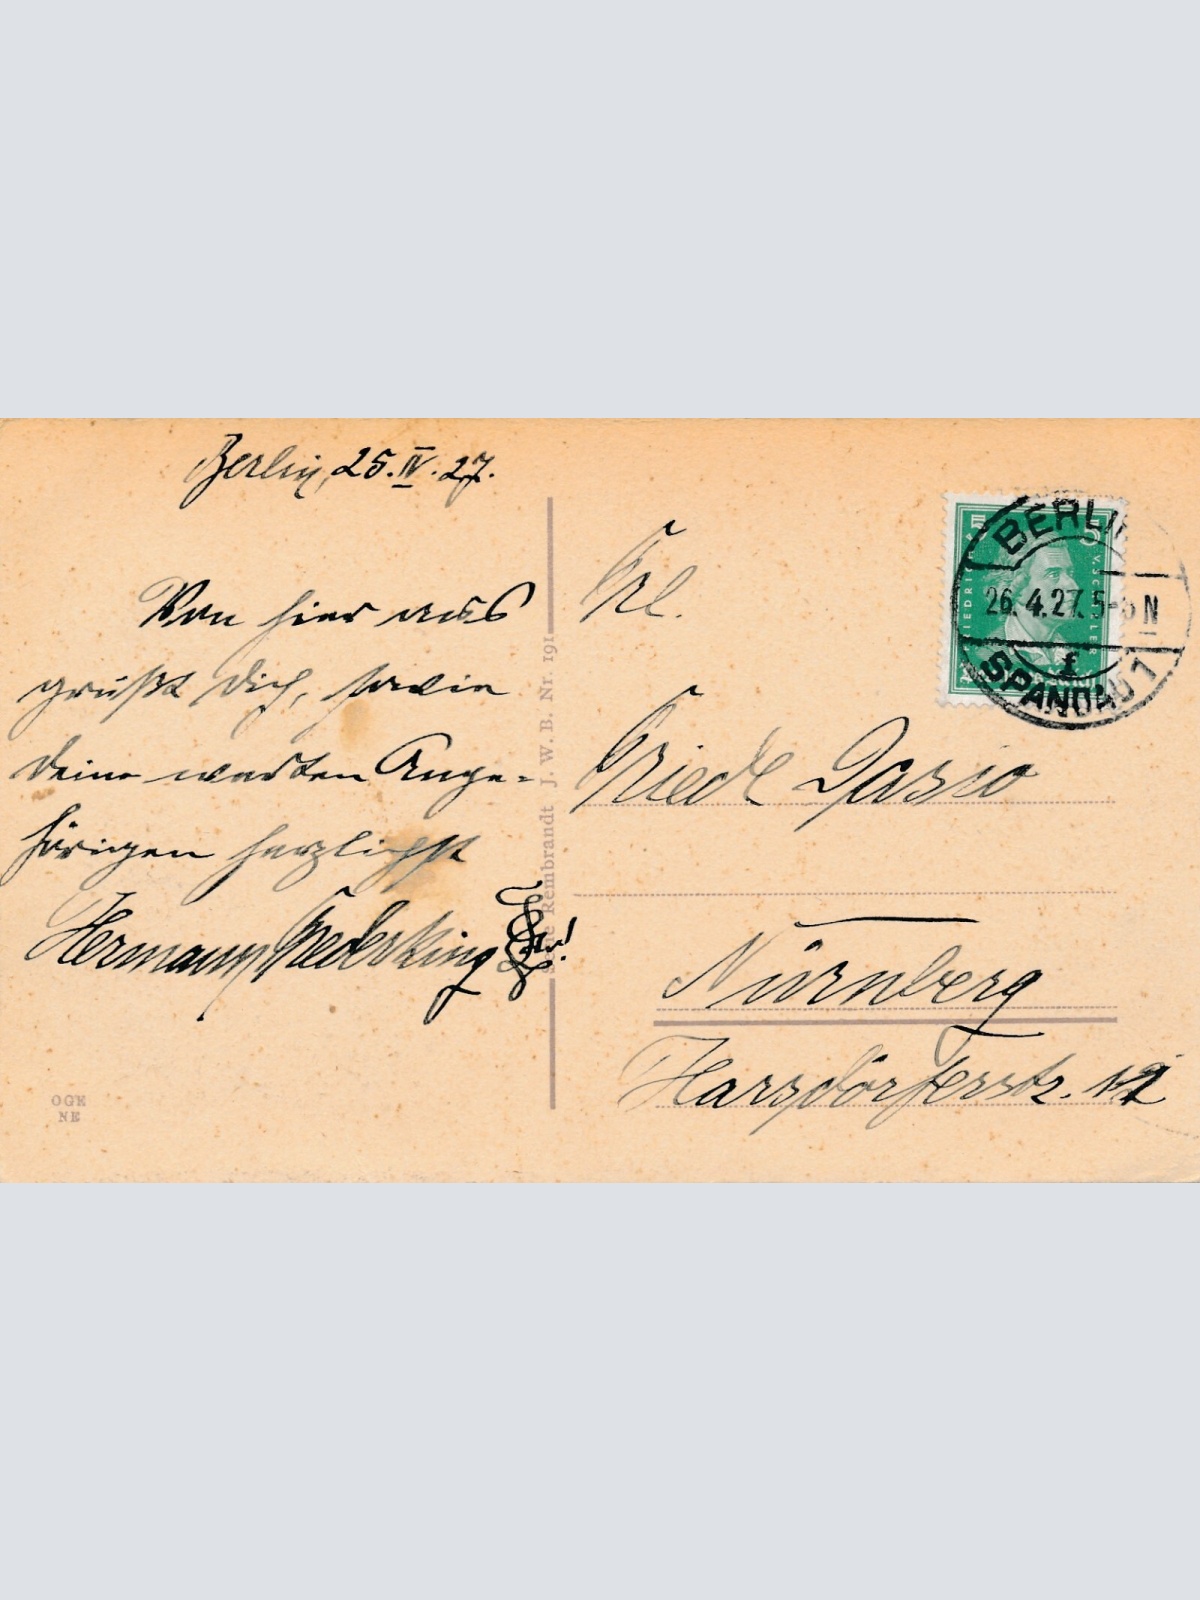 Berlin, 25. IV. 27.
Von hier aus
grüßt Dich, sowie
Deine werten Ange-
hörigen herzlichst
Hermann Niederking
Frl.
Friedl Dasio
Nürnberg
Harsdörferstr. 12
BERLIN
26.4.27. 5-6 N
f
SPANDAU 1
5
FRIEDRICH
V. SCHILLER
Serie Rembrandt J. W. B. Nr. 191
OGE
NE